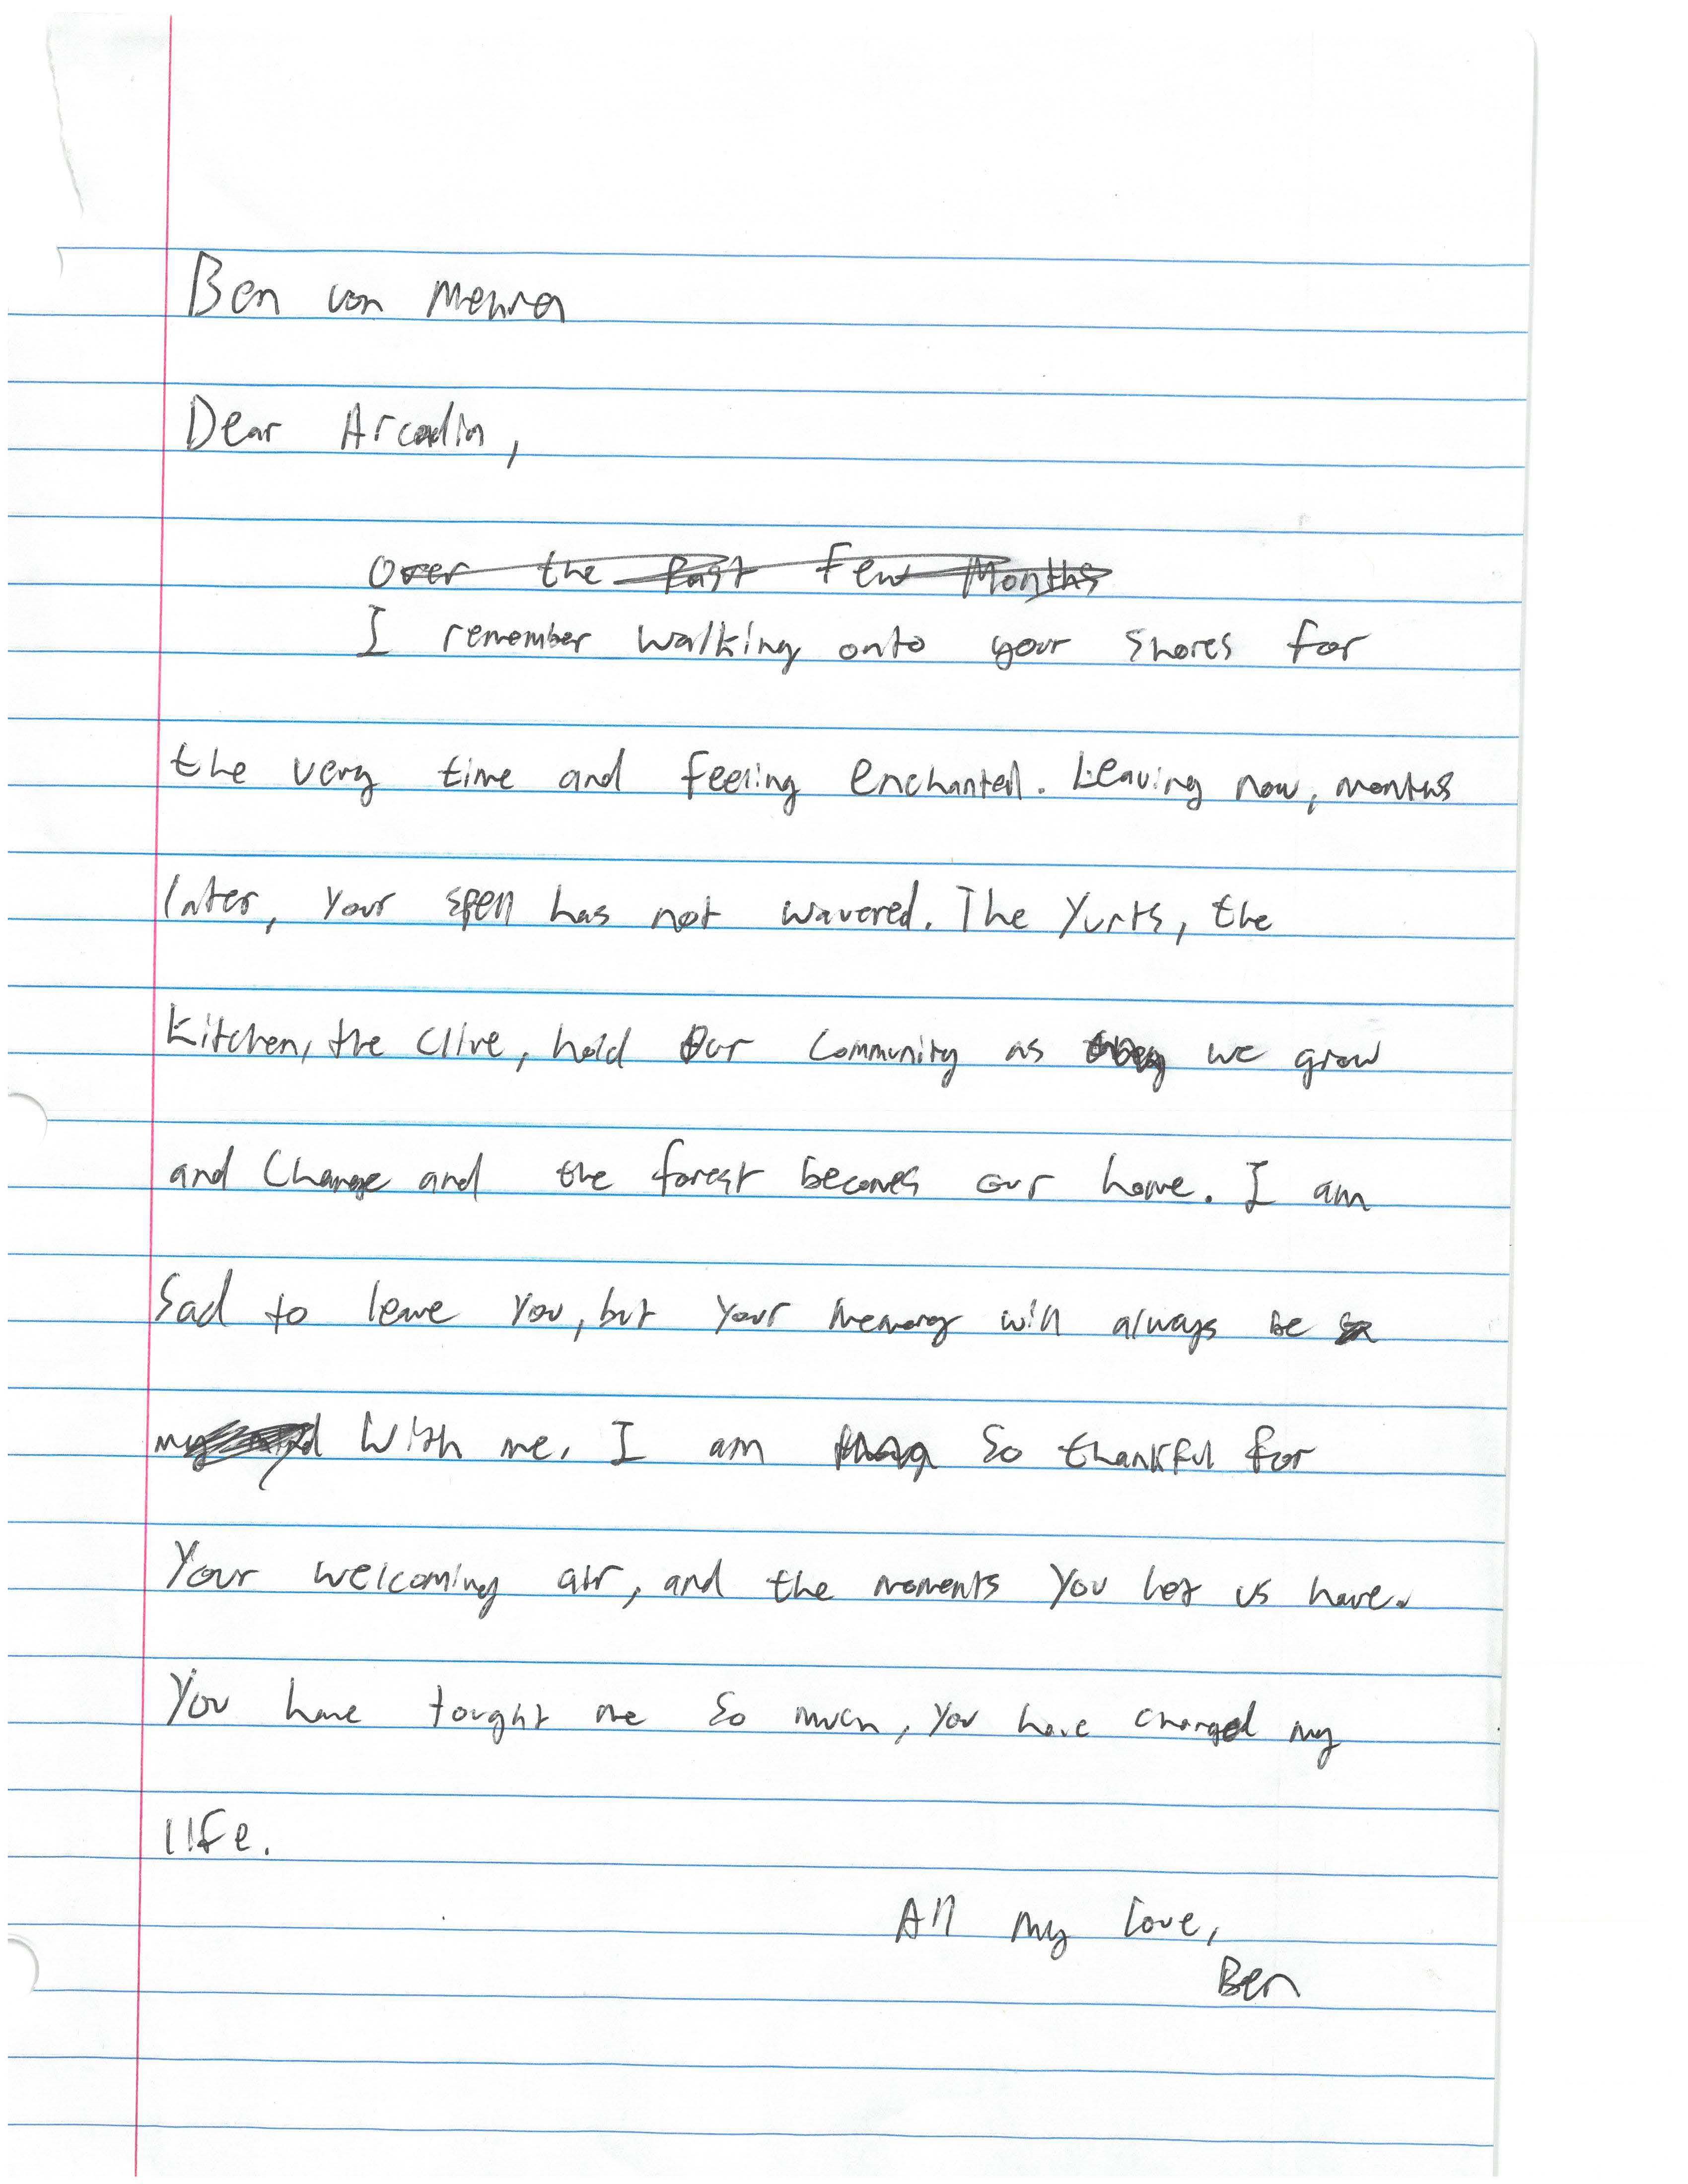 Ben von
Dear Arcadia,
Over the Past Few Months
I remember walking onto your shores for
the very time and feeling enchanted. Leaving now, months
later, your spell has not wavered. The Yurts, the
kitchen, the Clive, hold Our Community as they we grow
and Change and the forest becomes our home. I am
Sad to leave you, but your memory will always be
my mind With me. I am So thankful for
Your welcoming air, and the moments you let us have.
You have tought me so much, you have changed my
life.
All my love,
Ben